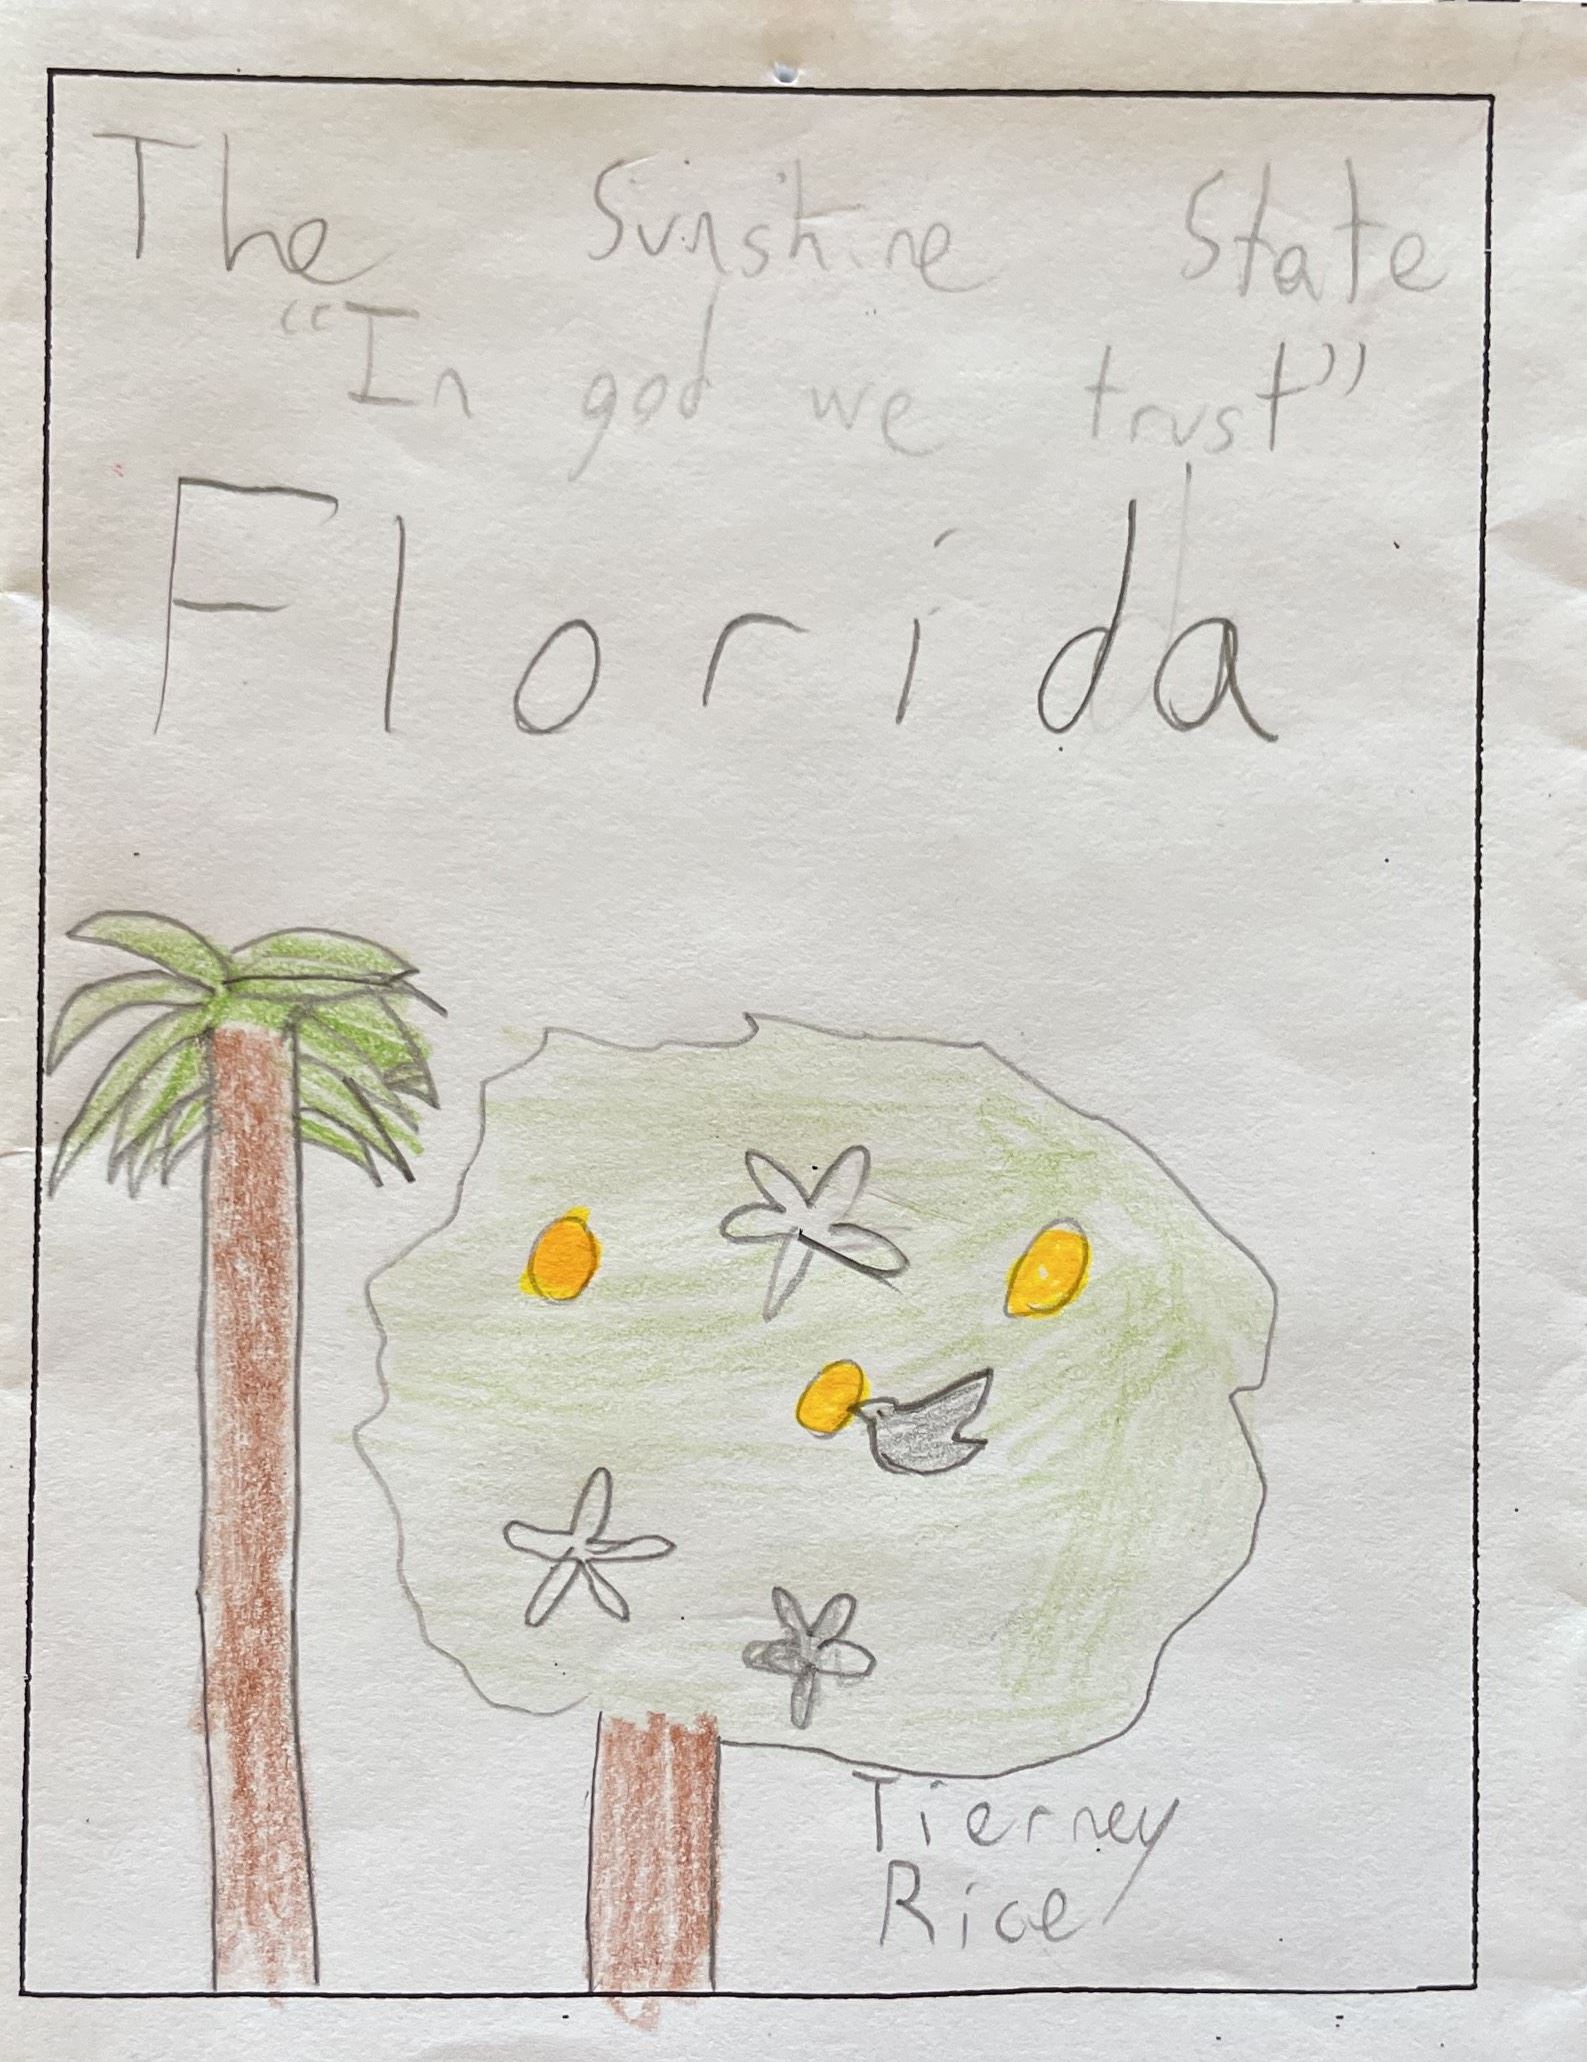 The Sunshine State
“In god we trust”
Florida
Tierney
Rice